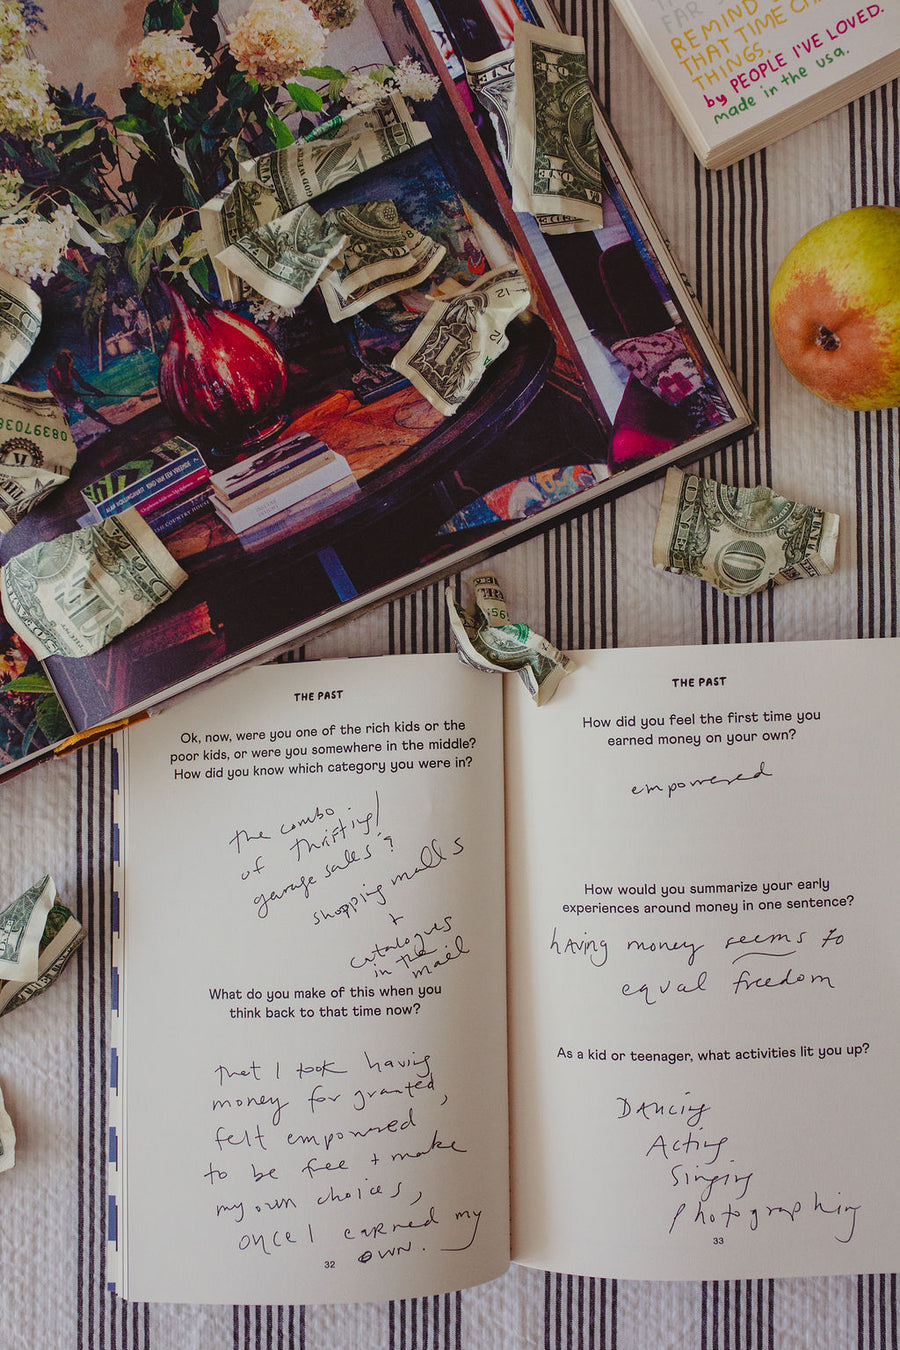 REMIND
THAT TIME
THINGS.
by PEOPLE I'VE LOVED.
made in the usa.
THE PAST
Ok, now, were you one of the rich kids or the
poor kids, or were you somewhere in the middle?
How did you know which category you were in?
the combo
of thrifting/
garage sales?
shopping malls
+
catalogues
in the
mail
What do you make of this when you
think back to that time now?
that I took having
money for granted,
felt empowered
to be free + make
my own choices,
once I earned my
own.
32
THE PAST
How did you feel the first time you
earned money on your own?
empowered
How would you summarize your early
experiences around money in one sentence?
having money seems to
equal freedom
As a kid or teenager, what activities lit you up?
Dancing
Acting
Singing
Photographing
33